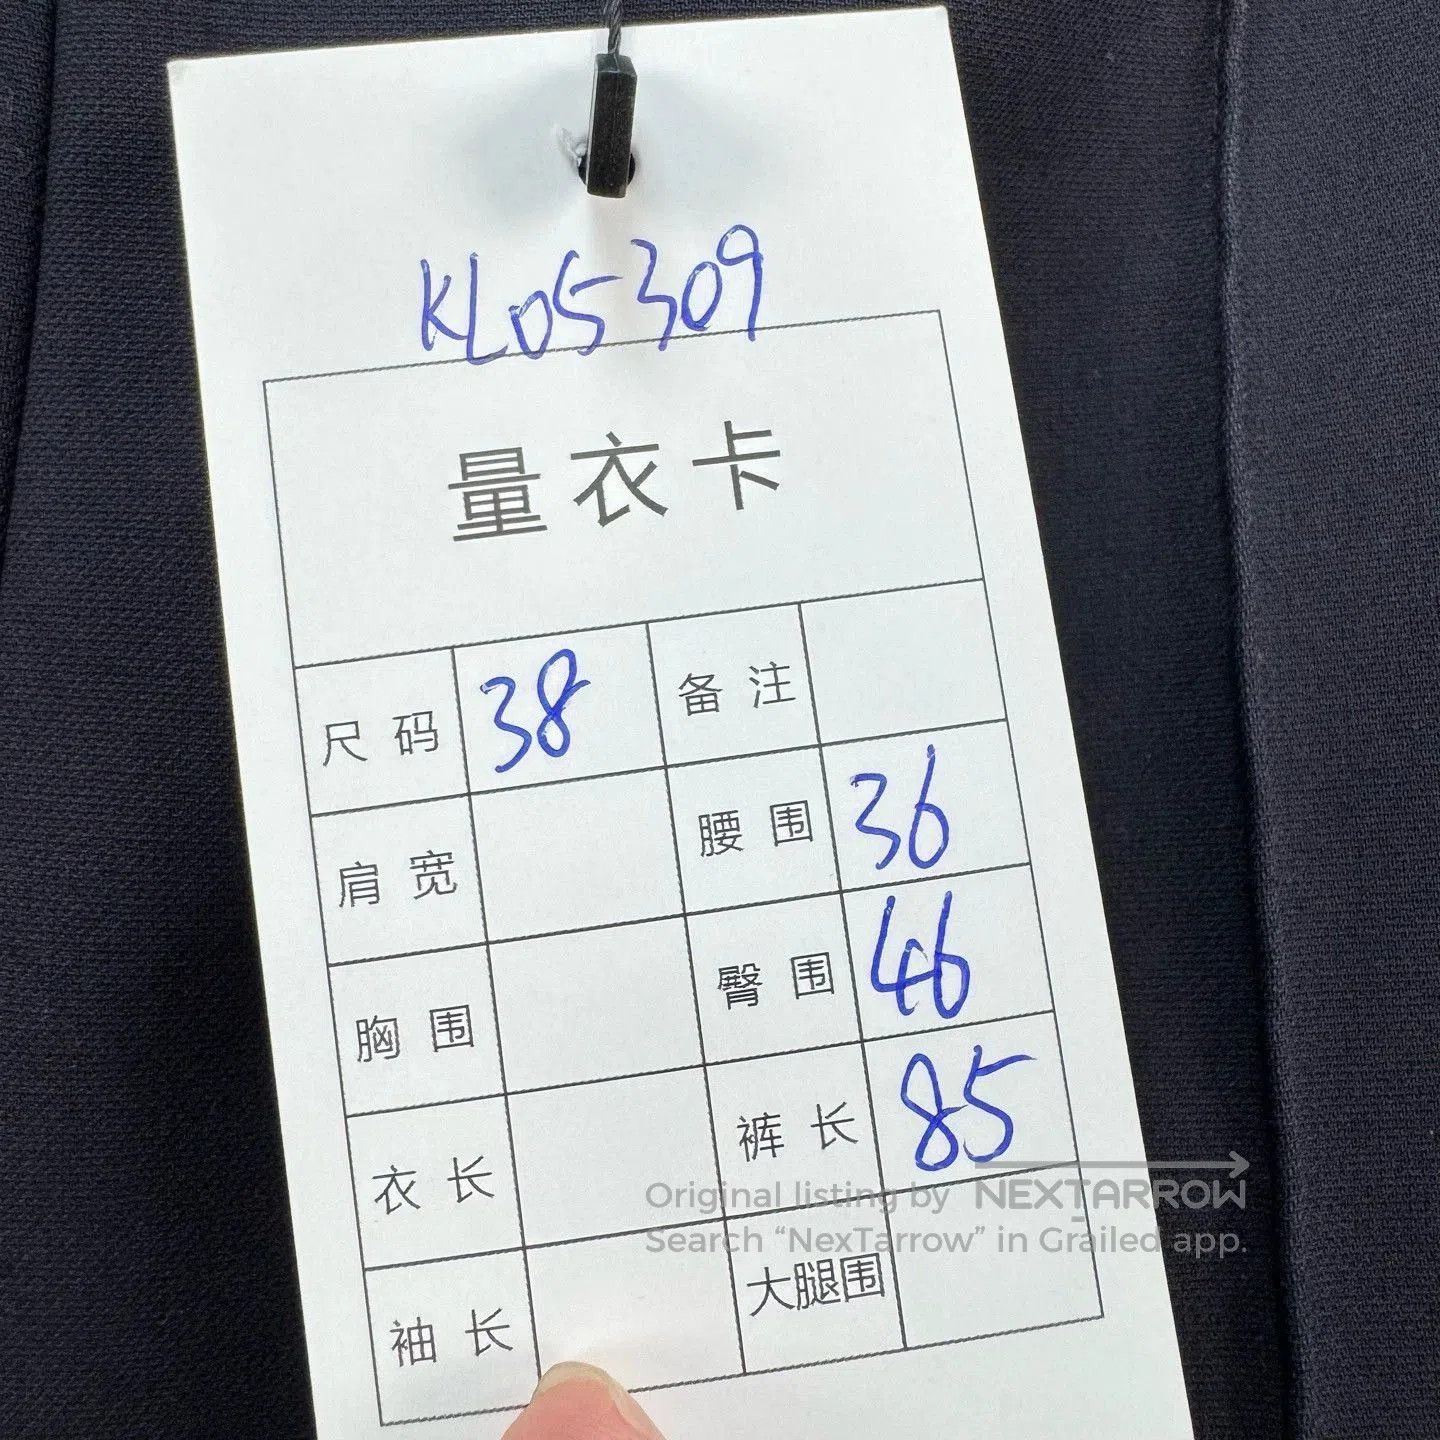 KL05309
量衣卡
尺码 38 备注
肩宽 腰围 36
胸围 臀围 46
衣长 裤长 85
袖长 大腿围
Original listing by NEXTARROW
Search “NexTarrow” in Grailed app.